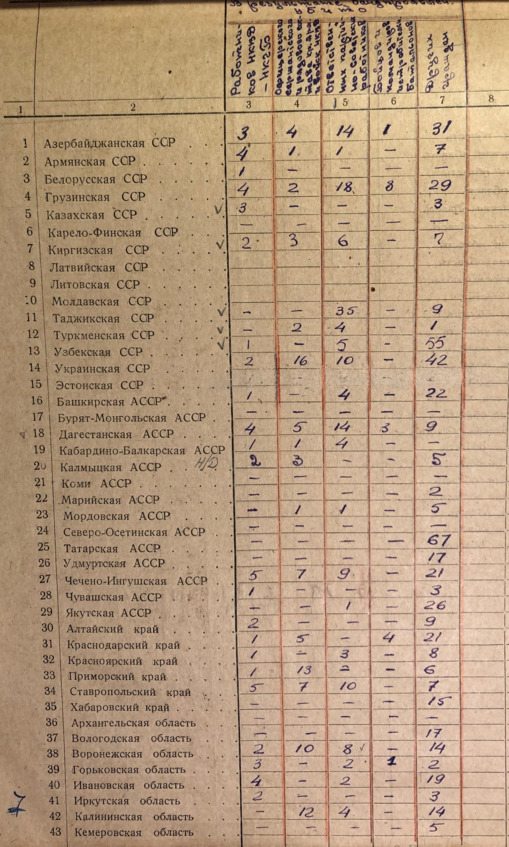 Работни-
ков НКВД
– НКГБ
сержантского
и рядового со-
войск НКВД
Ответствен-
ных партий-
но-советских
работников
Бойцов и
командиров
истребительн.
батальонов
Других
граждан
1 2 3 4 5 6 7 8
1 Азербайджанская ССР 3 4 14 1 31
2 Армянская ССР 4 1 1 – 7
3 Белорусская ССР 1 – – – –
4 Грузинская ССР 4 2 18 8 29
5 Казахская ССР ✓ 3 – – – 3
6 Карело-Финская ССР – – – – –
7 Киргизская ССР ✓ 2 3 6 – 7
8 Латвийская ССР
9 Литовская ССР
10 Молдавская ССР
11 Таджикская ССР ✓ – – 35 – 9
12 Туркменская ССР ✓ – 2 4 – 1
13 Узбекская ССР ✓ 1 – 5 – 55
14 Украинская ССР 2 16 10 – 42
15 Эстонская ССР
16 Башкирская АССР 1 – 4 – 22
17 Бурят-Монгольская АССР – – – – –
18 Дагестанская АССР 4 5 14 3 9
19 Кабардино-Балкарская АССР 1 1 4 – –
20 Калмыцкая АССР Н/Д 2 3 – – 5
21 Коми АССР – – – – –
22 Марийская АССР – – – – 2
23 Мордовская АССР – 1 1 – 5
24 Северо-Осетинская АССР – – – – –
25 Татарская АССР – – – – 67
26 Удмуртская АССР – – – – 17
27 Чечено-Ингушская АССР 5 7 9 – 21
28 Чувашская АССР 1 – – – 3
29 Якутская АССР – – 1 – 26
30 Алтайский край 2 – – – 9
31 Краснодарский край 1 5 – 4 21
32 Красноярский край 1 – 3 – 8
33 Приморский край 1 13 2 – 6
34 Ставропольский край 5 7 10 – 7
35 Хабаровский край – – – – 15
36 Архангельская область – – – – –
37 Вологодская область – – – – 17
38 Воронежская область 2 10 8 ✓ – 14
39 Горьковская область 3 – 2 1 2
40 Ивановская область 4 – 2 – 19
41 Иркутская область 2 – – – 3
7
42 Калининская область – 12 4 – 14
43 Кемеровская область – – – – 5